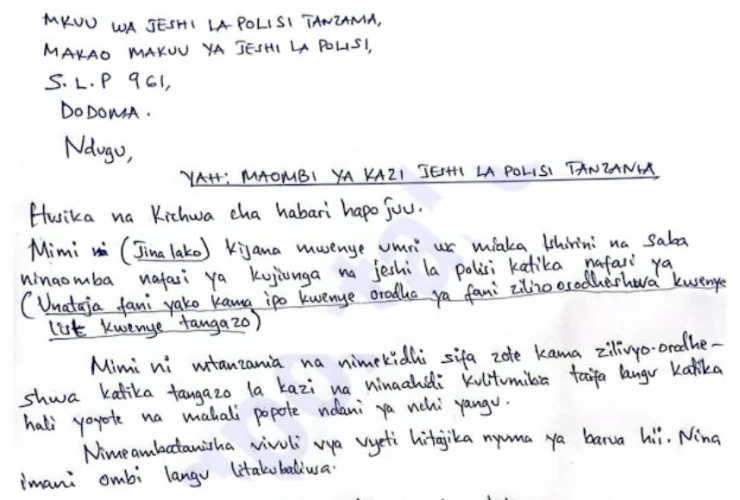 MKUU WA JESHI LA POLISI TANZANIA,
MAKAO MAKUU YA JESHI LA POLISI,
S.L.P 961,
DODOMA.
Ndugu,
YAH: MAOMBI YA KAZI JESHI LA POLISI TANZANIA
Husika na Kichwa cha habari hapo juu.
Mimi ni (Jina lako) kijana mwenye umri wa miaka Ishirini na saba
ninaomba nafasi ya kujiunga na jeshi la polisi katika nafasi ya
(Unataja fani yako kama ipo kwenye orodha ya fani zilizoorodheshwa kwenye
list kwenye tangazo)
Mimi ni mtanzania na nimekidhi sifa zote kama zilivyo-orodhe-
shwa katika tangazo la kazi na ninaahidi kulitumikia taifa langu katika
hali yoyote na mahali popote ndani ya nchi yangu.
Nimeambatanisha vivuli vya vyeti hitajika nyuma ya barua hii. Nina
imani ombi langu litakubaliwa.